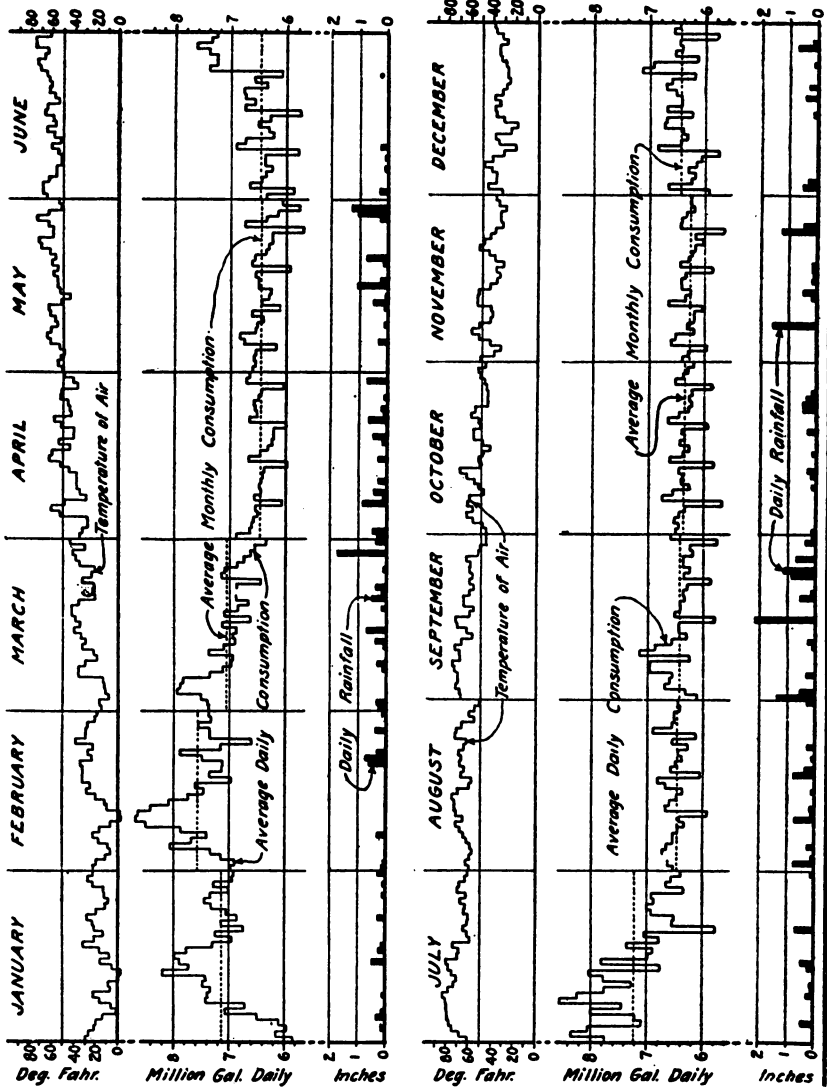 JANUARY FEBRUARY MARCH APRIL MAY JUNE
Deg. Fahr.
80 60 40 20 0
80 60 40 20 0
Temperature of Air
Million Gal. Daily
8 7 6
8 7 6
Average Monthly Consumption
Average Daily Consumption
Inches
2 1 0
2 1 0
Daily Rainfall
JULY AUGUST SEPTEMBER OCTOBER NOVEMBER DECEMBER
Deg. Fahr.
80 60 40 20 0
80 60 40 20 0
Temperature of Air
Million Gal. Daily
8 7 6
8 7 6
Average Daily Consumption
Average Monthly Consumption
Inches
2 1 0
2 1 0
Daily Rainfall